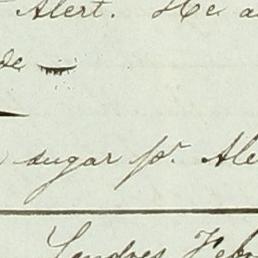 Alert. He a
de
sugar pr. Ale
Londres Febr